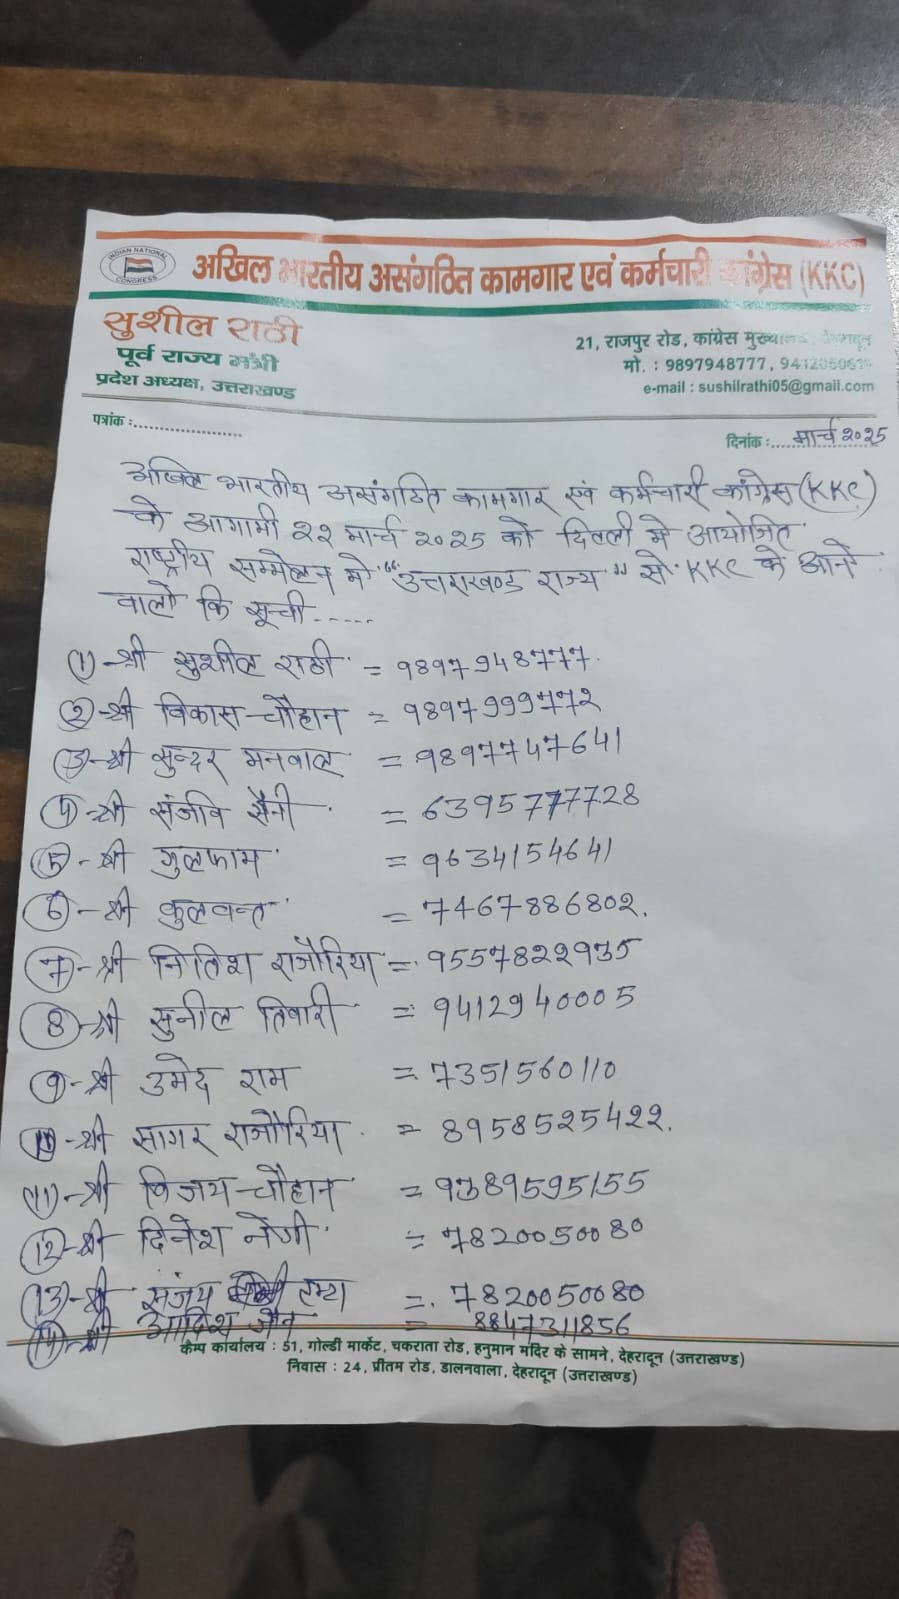 INDIAN NATIONAL CONGRESS
अखिल भारतीय असंगठित कामगार एवं कर्मचारी कांग्रेस (KKC)
सुशील राठी
पूर्व राज्य मंत्री
प्रदेश अध्यक्ष, उत्तराखण्ड
21, राजपुर रोड, कांग्रेस मुख्यालय, देहरादून
मो. : 9897948777,
e-mail : sushilrathi05@gmail.com
पत्रांक :....................
दिनांक :..... मार्च २०२5
अखिल भारतीय असंगठित कामगार एवं कर्मचारी कांग्रेस (KKC)
के आगामी २२ मार्च २०२5 को दिल्ली मे आयोजित
राष्ट्रीय सम्मेलन मे "उत्तराखण्ड राज्य" से KKC के आने
वालो कि सूची.....
(1)-श्री सुशील राठी = 9897948777.
(2)-श्री विकास चौहान = 9897999772
(3)-श्री सुन्दर मनवाल = 9897747641
(4)-श्री संजीव सैनी = 6395777728
(5)-श्री गुलफाम = 9634154641
(6)-श्री कुलवन्त = 7467886802.
(7)-श्री नितिश राजौरिया = 9557822935
(8)-श्री सुनील तिवारी = 9412940005
(9)-श्री उमेद राम = 7351560110
(10)-श्री सागर राजौरिया = 8958525422.
(11)-श्री विजय चौहान = 9389595155
(12)-श्री दिनेश नेगी = 7820050080
(13)-श्री संजय टम्टा = 7820050080
(14)-श्री आदिश जैन = 8847311856
कैम्प कार्यालय : 51, गोल्डी मार्केट, चकराता रोड, हनुमान मंदिर के सामने, देहरादून (उत्तराखण्ड)
निवास : 24, प्रीतम रोड, डालनवाला, देहरादून (उत्तराखण्ड)